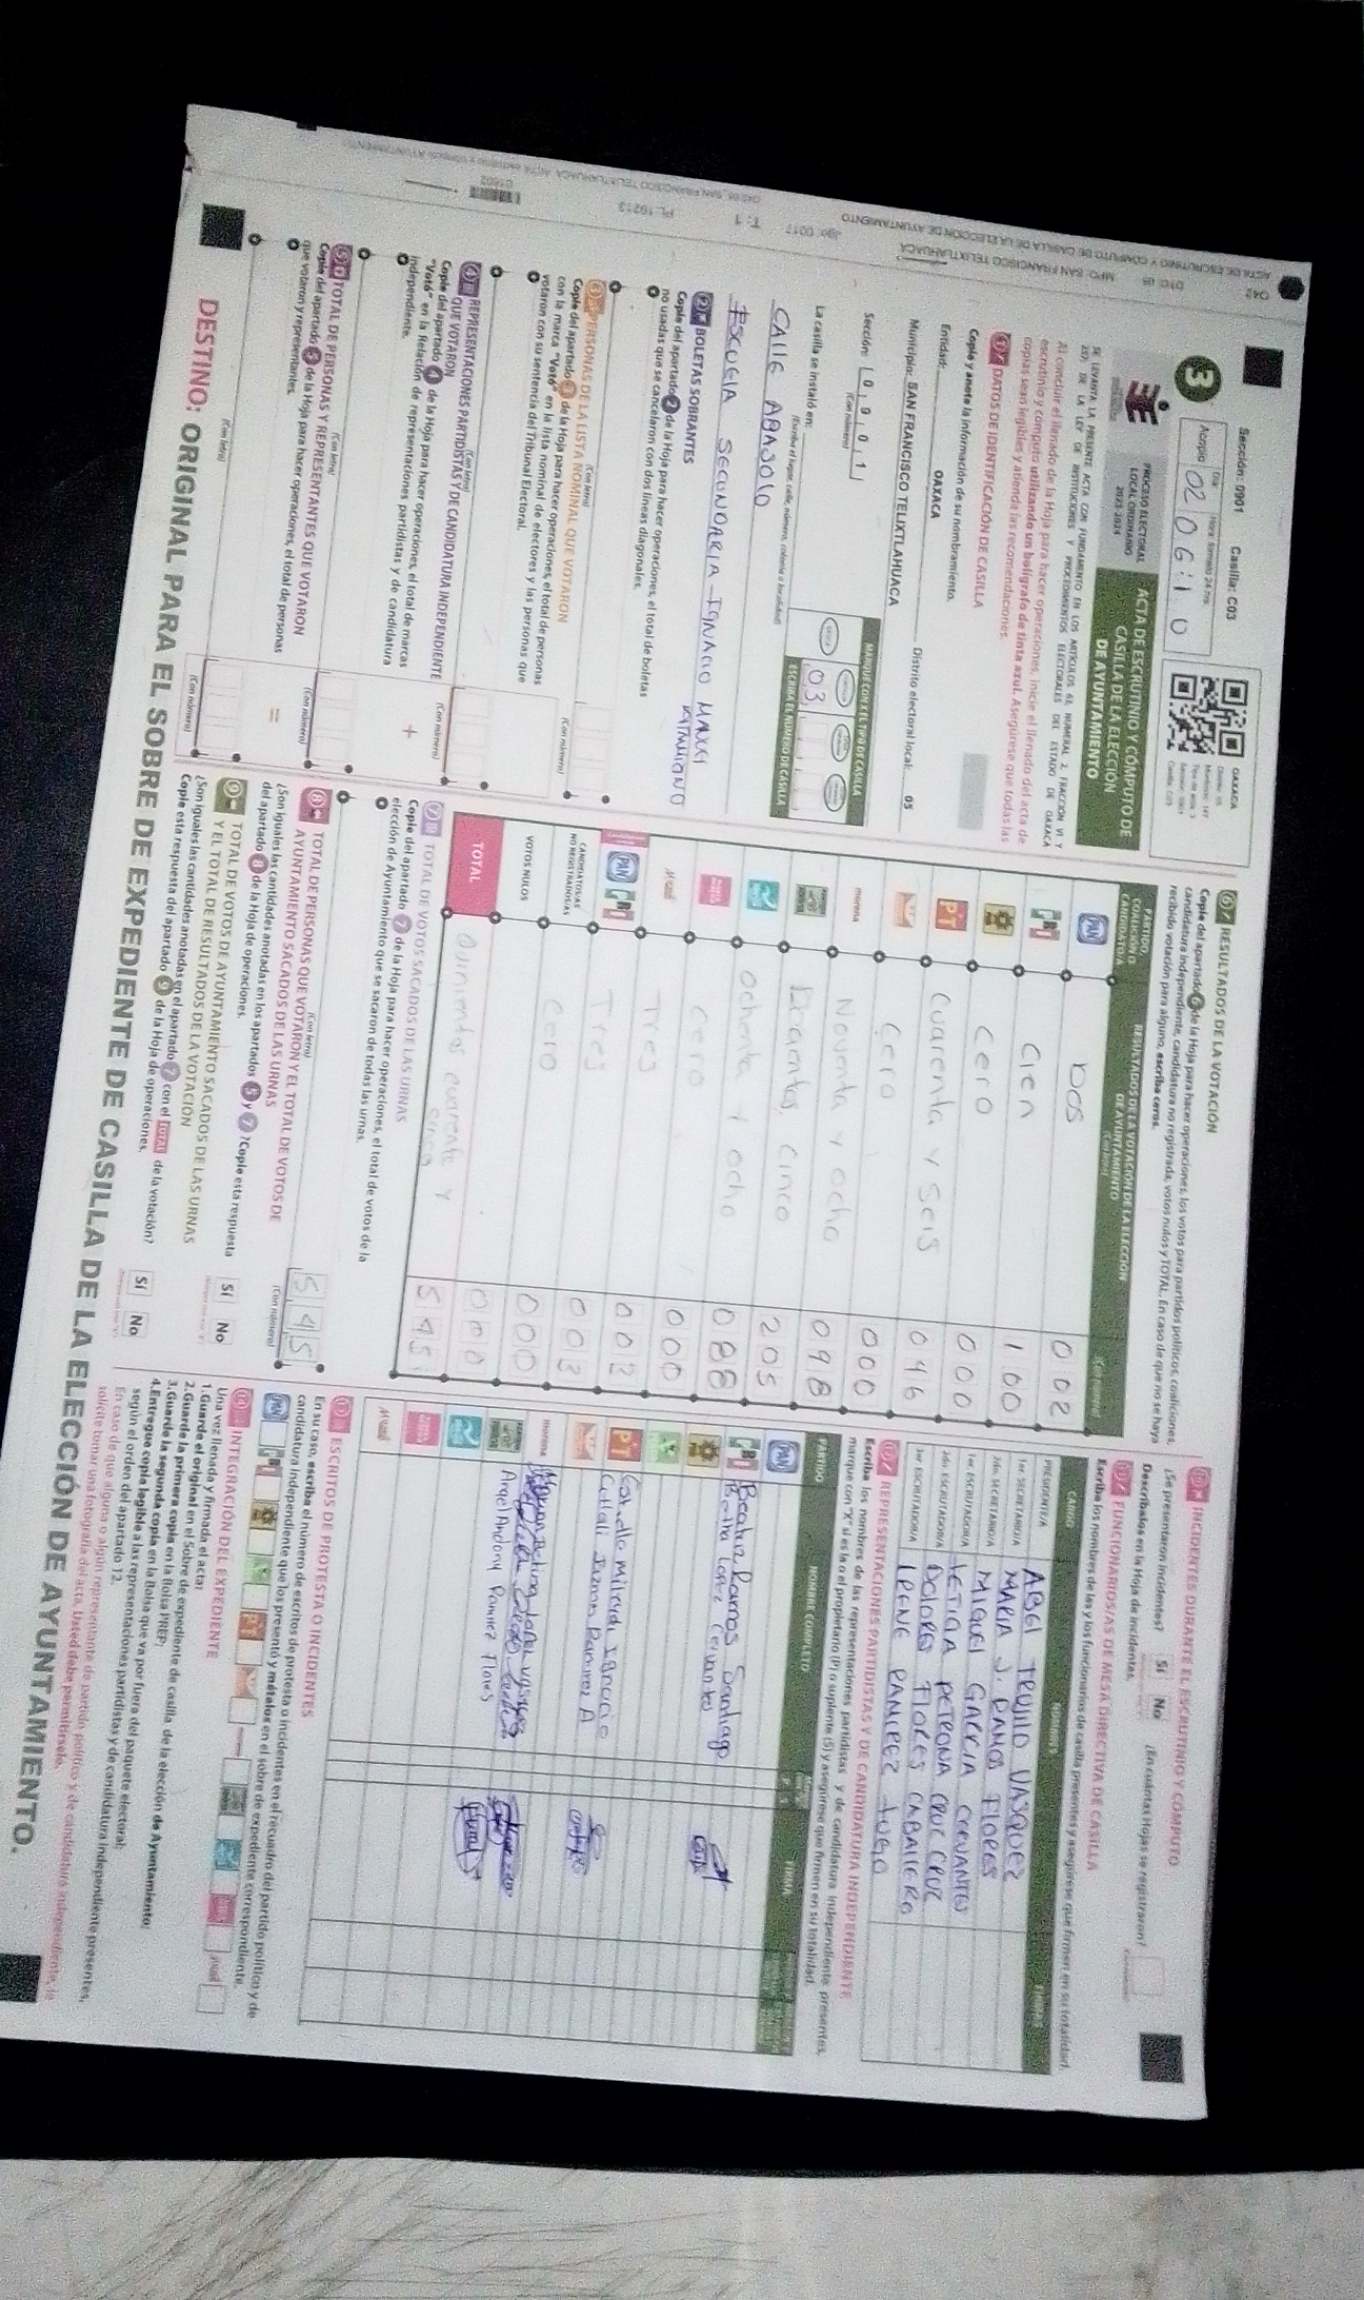 Sección: 0901 Casilla: C03
3
Acopio 02 06:10
OAXACA
PROCESO ELECTORAL
LOCAL ORDINARIO
2023-2024
ACTA DE ESCRUTINIO Y CÓMPUTO DE
CASILLA DE LA ELECCIÓN
DE AYUNTAMIENTO
SE LEVANTA LA PRESENTE ACTA CON FUNDAMENTO EN LOS ARTÍCULOS
Al concluir el llenado de la Hoja para hacer operaciones, inicie el llenado del acta de
escrutinio y cómputo utilizando un bolígrafo de tinta azul. Asegúrese que todas las
copias sean legibles y atienda las recomendaciones.
1 DATOS DE IDENTIFICACIÓN DE CASILLA
Copie y anote la información de su nombramiento.
Entidad: OAXACA Distrito electoral local: 05
Municipio: SAN FRANCISCO TELIXTLAHUACA
Sección: 0 9 0 1
(Con número)
MARQUE CON X EL TIPO DE CASILLA
03
ESCRIBA EL NÚMERO DE CASILLA
La casilla se instaló en:
CALLE ABASOLO
ESCUELA SECUNDARIA IGNACIO MANUEL
2 BOLETAS SOBRANTES
Copie del apartado 2 de la Hoja para hacer operaciones, el total de boletas
no usadas que se cancelaron con dos líneas diagonales.
(Con letra) (Con número)
3 PERSONAS DE LA LISTA NOMINAL QUE VOTARON
Copie del apartado 3 de la Hoja para hacer operaciones, el total de personas
con la marca "Votó" en la lista nominal de electores y las personas que
votaron con su sentencia del Tribunal Electoral.
(Con letra) (Con número)
4 REPRESENTACIONES PARTIDISTAS Y DE CANDIDATURA INDEPENDIENTE
QUE VOTARON
Copie del apartado 4 de la Hoja para hacer operaciones, el total de marcas
"Votó" en la Relación de representaciones partidistas y de candidatura
independiente.
+
(Con letra) (Con número)
5 TOTAL DE PERSONAS Y REPRESENTANTES QUE VOTARON
Copie del apartado 5 de la Hoja para hacer operaciones, el total de personas
que votaron y representantes.
=
(Con letra) (Con número)
6 RESULTADOS DE LA VOTACIÓN
Copie del apartado 6 de la Hoja para hacer operaciones, los votos para partidos políticos, coaliciones,
candidatura independiente, candidatura no registrada, votos nulos y TOTAL. En caso de que no se haya
recibido votación para alguno, escriba ceros.
PARTIDO, COALICIÓN O CANDIDATO/A
RESULTADOS DE LA VOTACIÓN DE LA ELECCIÓN
DE AYUNTAMIENTO
(Con letra) (Con número)
PAN Dos 002
PRI Cien 100
Cero 000
PT Cuarenta y Seis 046
Cero 000
morena Noventa y ocho 098
Doscientos cinco 205
Ochenta y ocho 088
Cero 000
Tres 003
PAN PRI Tres 003
CANDIDATOS/AS
NO REGISTRADOS/AS
Cero 000
VOTOS NULOS 000
TOTAL Quinientos cuarenta y cinco 545
7 TOTAL DE VOTOS SACADOS DE LAS URNAS
Copie del apartado 7 de la Hoja para hacer operaciones, el total de votos de la
elección de Ayuntamiento que se sacaron de todas las urnas.
545
(Con letra) (Con número)
8 TOTAL DE PERSONAS QUE VOTARON Y EL TOTAL DE VOTOS DE
AYUNTAMIENTO SACADOS DE LAS URNAS
¿Son iguales las cantidades anotadas en los apartados 5 y 7? Copie esta respuesta
del apartado 8 de la Hoja de operaciones.
Sí No
9 TOTAL DE VOTOS DE AYUNTAMIENTO SACADOS DE LAS URNAS
Y EL TOTAL DE RESULTADOS DE LA VOTACIÓN
¿Son iguales las cantidades anotadas en el apartado 7 con el TOTAL de la votación?
Copie esta respuesta del apartado 9 de la Hoja de operaciones.
Sí No
10 INCIDENTES DURANTE EL ESCRUTINIO Y CÓMPUTO
¿Se presentaron incidentes? Sí No ¿En cuántas Hojas se registraron?
Descríbalos en la Hoja de incidentes.
11 FUNCIONARIOS/AS DE MESA DIRECTIVA DE CASILLA
Escriba los nombres de las y los funcionarios de casilla presentes y asegúrese que firmen en su totalidad.
CARGO NOMBRES FIRMAS
PRESIDENTE/A ABEL TRUJILLO VASQUEZ
1er. SECRETARIO/A MARIA J. RAMOS FLORES
2do. SECRETARIO/A MIGUEL GARCIA CERVANTES
1er. ESCRUTADOR/A LETICIA PETRONA CRUZ CRUZ
2do. ESCRUTADOR/A DOLORES FLORES CABALLERO
3er. ESCRUTADOR/A IRENE RAMIREZ
12 REPRESENTACIONES PARTIDISTAS Y DE CANDIDATURA INDEPENDIENTE
Escriba los nombres de las representaciones partidistas y de candidatura independiente presentes,
marque con "X" si es la o el propietario (P) o suplente (S) y asegúrese que firmen en su totalidad.
PARTIDO NOMBRE COMPLETO FIRMA
PAN
PRI Beatriz Ramos Santiago
Bertha Lopez Cervantes
PT
Citlali Ramirez A
morena
Argel Andony Ramirez Flores
13 ESCRITOS DE PROTESTA O INCIDENTES
En su caso, escriba el número de escritos de protesta o incidentes en el recuadro del partido político y de
candidatura independiente que los presentó y métalos en el sobre de expediente correspondiente.
14 INTEGRACIÓN DEL EXPEDIENTE
Una vez llenada y firmada el acta:
1. Guarde el original en el Sobre de expediente de casilla de la elección de Ayuntamiento;
2. Guarde la primera copia en la Bolsa PREP;
3. Guarde la segunda copia en la Bolsa que va por fuera del paquete electoral;
4. Entregue copia legible a las representaciones partidistas y de candidatura independiente presentes,
según el orden del apartado 12.
En caso de que alguna o algún representante de partido político y de candidatura independiente, le
solicite tomar una fotografía del acta, Usted debe permitírselo.
DESTINO: ORIGINAL PARA EL SOBRE DE EXPEDIENTE DE CASILLA DE LA ELECCIÓN DE AYUNTAMIENTO.